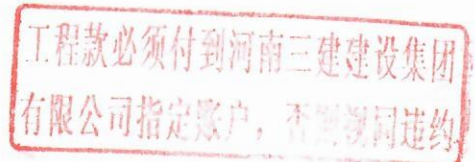 工程款必须付到河南三建建设集团
有限公司指定账户，否则视同违约